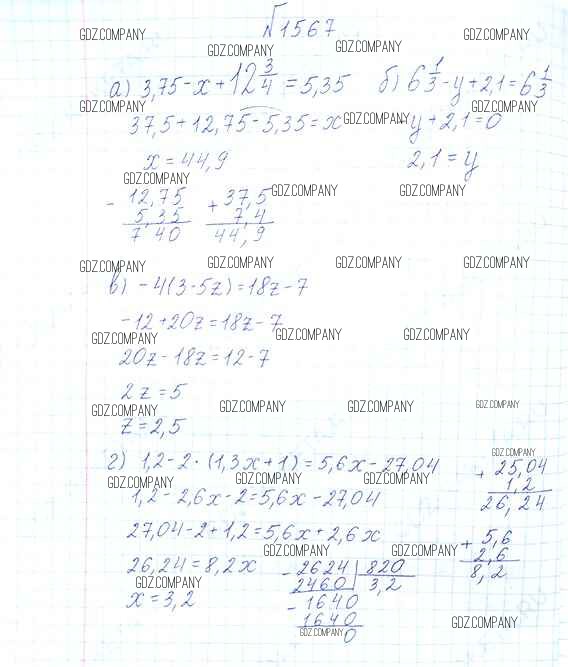 №1567
GDZ.COMPANY GDZ.COMPANY GDZ.COMPANY GDZ.COMPANY
а) 3,75 - x + 12 3/4 = 5,35 б) 6 1/3 - y + 2,1 = 6 1/3
GDZ.COMPANY GDZ.COMPANY GDZ.COMPANY
37,5 + 12,75 - 5,35 = x -y + 2,1 = 0
x = 44,9 2,1 = y
GDZ.COMPANY GDZ.COMPANY GDZ.COMPANY
- 12,75 + 37,5
5,35 7,4
7 40 44,9
GDZ.COMPANY GDZ.COMPANY GDZ.COMPANY GDZ.COMPANY
в) -4(3-5z) = 18z - 7
-12 + 20z = 18z - 7
GDZ.COMPANY GDZ.COMPANY GDZ.COMPANY
20z - 18z = 12 - 7
2z = 5
GDZ.COMPANY GDZ.COMPANY GDZ.COMPANY GDZ.COMPANY
z = 2,5
г) 1,2 - 2 · (1,3x + 1) = 5,6x - 27,04 + 25,04
GDZ.COMPANY GDZ.COMPANY GDZ.COMPANY GDZ.COMPANY
1,2
1,2 - 2,6x - 2 = 5,6x - 27,04 26,24
27,04 - 2 + 1,2 = 5,6x + 2,6x + 5,6
GDZ.COMPANY GDZ.COMPANY 2,6
26,24 = 8,2x - 2624 820 8,2
GDZ.COMPANY 2460 3,2
x = 3,2 - 1640
1640
GDZ.COMPANY 0 GDZ.COMPANY